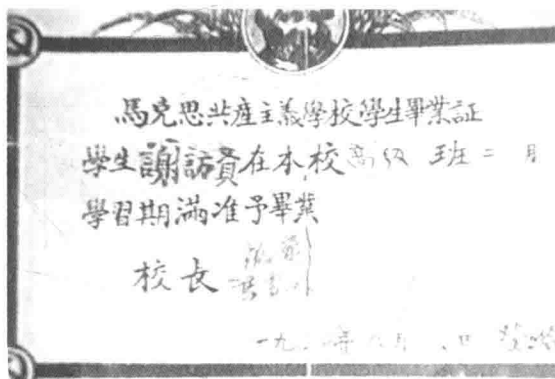 馬克思共產主義學校學生畢業証
學生謝訪貴在本校高级 班二 月
學習期滿准予畢業
校长
一九